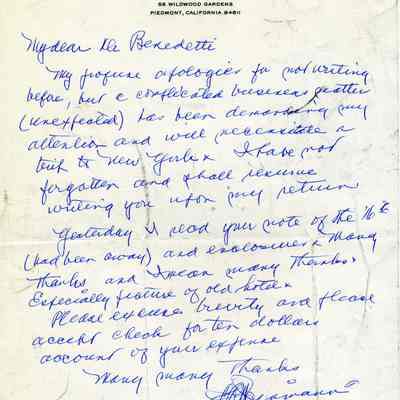 56 WILDWOOD GARDENS
PIEDMONT, CALIFORNIA 94611
My dear De Benedetti
My profuse apologies for not writing
before, but a complicated business matter
(unexpected) has been demanding my
attention and will necessitate a
trip to New York. I have not
forgotten and shall resume
writing you upon my return
Yesterday I read your note of the 16th
(had been away) and enclosures. Many
thanks and I mean many thanks.
Especially picture of old hotel.
Please excuse brevity and please
accept check for ten dollars
account of your expense
Many many thanks